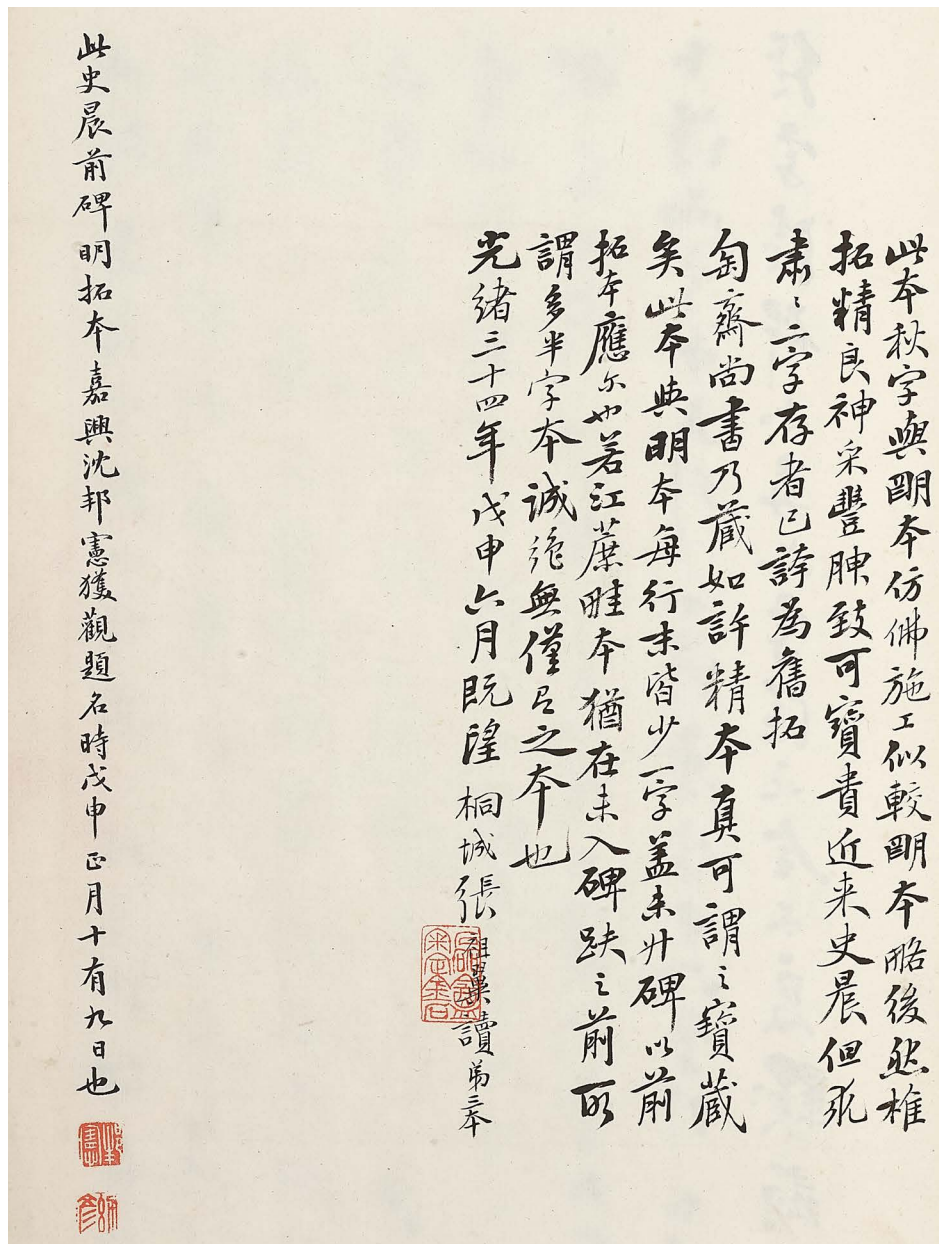 此本秋字與朙本仿佛施工似較朙本略後然椎
拓精良神采豐腴致可寶貴近来史晨但求
肅〻二字存者已誇為舊拓
匋齋尚書乃藏如許精本真可謂之寶藏
矣此本與明本每行末皆少一字盖未升碑以前
拓本應尔也若江蔗畦本猶在未入碑趺之前所
謂多半字本誠絶無僅有之本也
光緒三十四年戊申六月既望桐城張祖翼讀第三本
此史晨前碑明拓本嘉興沈邦憲獲觀題名時戊申正月十有九日也